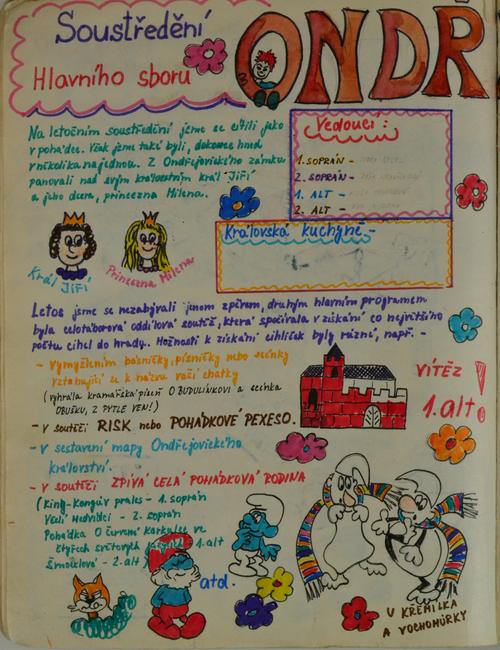 Soustředění
Hlavního sboru
ONDŘ
Na letošním soustředění jsme se cítili jako
v pohádce. Však jsme také byli, dokonce hned
v několika najednou. Z Ondřejovického zámku
panovali nad svým královstvím král JIŘÍ
a jeho dcera, princezna Milena.
Vedoucí:
1. SOPRÁN -
2. SOPRÁN -
1. ALT -
2. ALT -
Královská kuchyně -
Král JIŘÍ
Princezna Milena
Letos jsme se nezabývali jenom zpěvem, druhým hlavním programem
byla celotáborová oddílová soutěž, která spočívala v získání co největšího
počtu cihel do hradu. Možnosti k získání cihliček byly různé, např. -
- vymyšlením básničky, písničky nebo scénky
vztahující se k názvu vaší chatky
(vyhrála kramářská píseň O BUDULÍNKOVI a scénka
OBUŠKU, Z PYTLE VEN!)
- v soutěži RISK nebo POHÁDKOVÉ PEXESO.
- v sestavení mapy Ondřejovického
království.
- v soutěži ZPÍVÁ CELÁ POHÁDKOVÁ RODINA
(King-Kongův prales - 1. soprán
Včelí medvídci - 2. soprán
Pohádka O červené Karkulce ve
čtyřech světových 1. alt
Šmoulové - 2. alt)
atd.
VÍTĚZ
1. alt!
U KŘEMÍLKA
A VOCHOMŮRKY